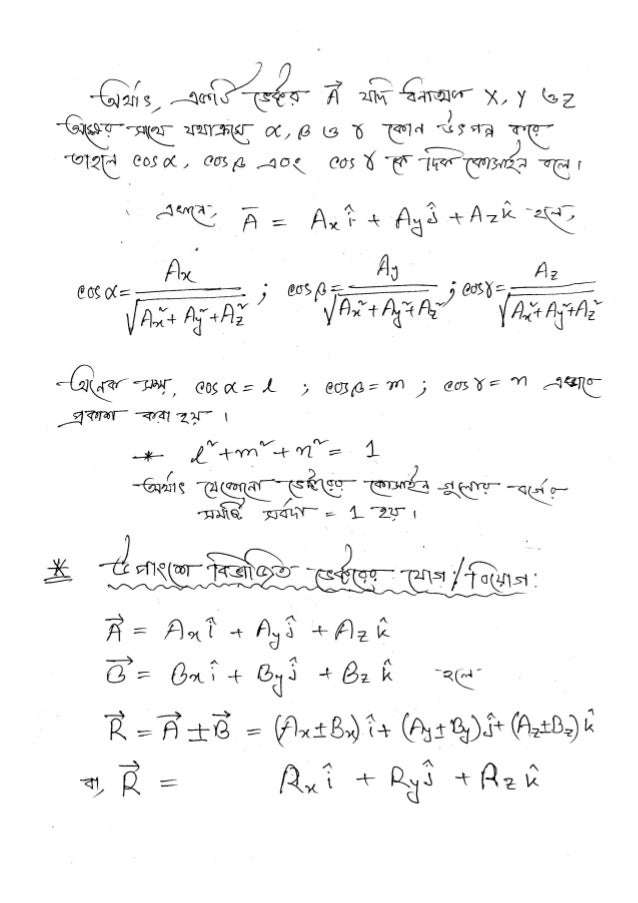 অর্থাৎ, একটি ভেক্টর A⃗ যদি ধনাত্মক X, Y ও Z
অক্ষের সাথে যথাক্রমে α, β ও γ কোন উৎপন্ন করে
তাহলে cos α, cos β এবং cos γ কে দিক কোসাইন বলে।
এখানে, A̅ = Axî + Ayĵ + Azk̂ হলে,
cos α = Ax / √(Ax² + Ay² + Az²) ; cos β = Ay / √(Ax² + Ay² + Az²) ; cos γ = Az / √(Ax² + Ay² + Az²)
অনেক সময়, cos α = l ; cos β = m ; cos γ = n এভাবে
প্রকাশ করা হয়।
* l² + m² + n² = 1
অর্থাৎ যেকোনো ভেক্টরের কোসাইন গুলোর বর্গের
সমষ্টি সর্বদা = 1 হয়।
* উপাংশে বিভাজিত ভেক্টরের যোগ/বিয়োগ:
A⃗ = Axî + Ayĵ + Azk̂
B⃗ = Bxî + Byĵ + Bzk̂ হলে
R⃗ = A⃗ ± B⃗ = (Ax±Bx)î + (Ay±By)ĵ + (Az±Bz)k̂
বা, R⃗ = Rxî + Ryĵ + Rzk̂